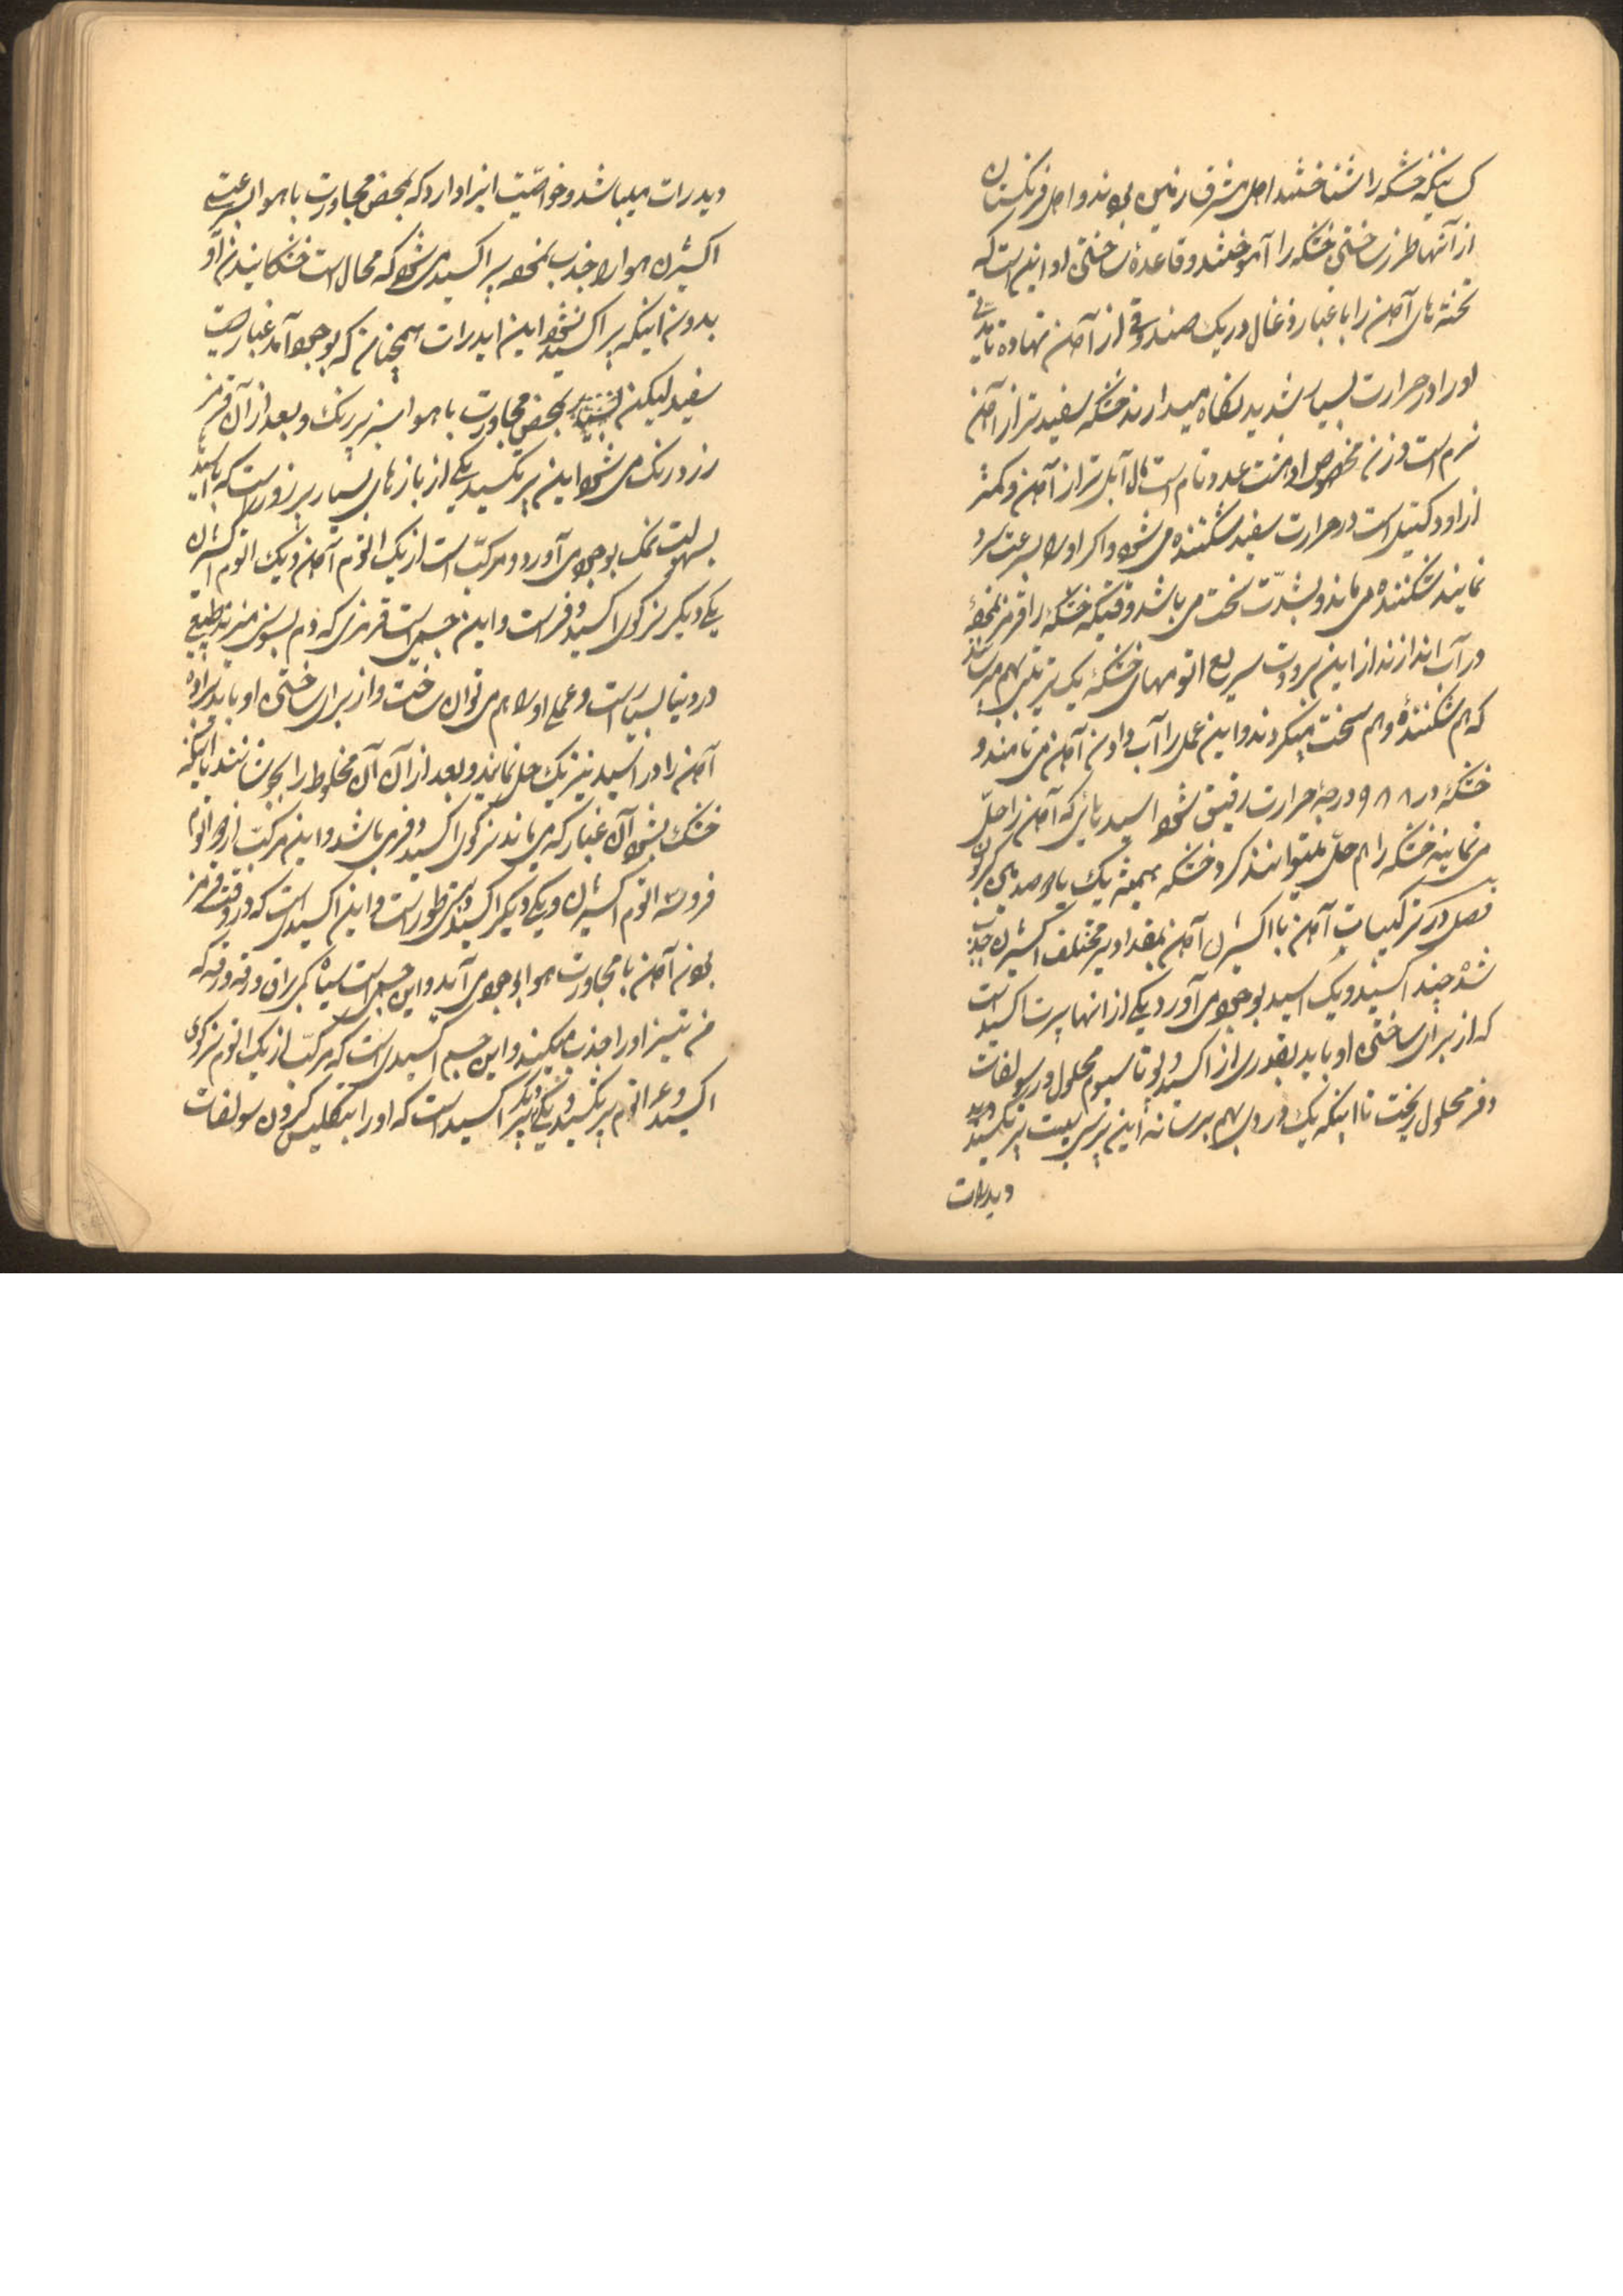 کسانیکه خشکه را شناختند اهل مشرق زمین بودند و اهل فرنگستان
از آنها طرز ساختن خشکه را آموختند و قاعدهٔ ساختن او این است که
تخته های آهن را با غبار ذغال در یک صندوقی از آهن نهاده تا مدتی
او را در حرارت بسیار شدید نگاه میدارند خشکه سفیدتر از آهن
نرم است وزن مخصوص او هشت عدد تام است مال آبل تر از آهن و کمتر
از او دکتیل است در حرارت سفید شکننده می شود و اگر او را بسرعت سرد
نمایند شکننده می ماند و بشدّت سخت می باشد وقتیکه خشکه را قرمز نموده
در آب اندازند از این برودت سریع اتومهای خشکه یک ترتیبی بهم میرسانند
که هم شکننده و هم سخت میگردند و این عمل را آب دادن آهن می نامند و
خشکه در ۹۸۸ درجهٔ حرارت رقیق شود اسیدهائی که آهن را حلّ
می نمایند خشکه را هم حلّ میتوانند کرد خشکه همیشه یک یا دو صدیک کربون
فصل در ترکیبات آهن با اکسیژن آهن بمقدار مختلف اکسیژن جذب
شده چند اکسید و یک اسید بوجود می آورد یکی از انها پرت اکسید است
که از برای ساختن او باید بقدری از اکسید دو پوتاسیوم محلول در سولفات
دفر محلول ریخت تا اینکه یک دردی بهم برساند این پرسی پیت پرتکسید دفر
دیدرات
دیدرات میباشد و خواصّیت اینرا دارد که بمحض مجاورت با هوا بسرعت
اکسیژن هوا را جذب نموده پراکسید می شود که محال است خشکانیدن او
بدون اینکه پراکسید نشود این ایدرات همچنان که بوجود آمد غباریست
سفید لیکن بمحض مجاورت با هوا سبز پررنگ و بعد از آن قرمز
زرد رنگ می شود این پرتکسید یکی از بازهای بسیار پر زور است که با اسیدها
بسهولت نمک بوجود می آورد و مرکّب است از یک اتوم آهن و یک اتوم اکسیژن
یکی دیگر سزکوی اکسید دفر است و این جسمی است قرمزی که دم بسوی منیزند طبیعی
در دنیا بسیار است و عملی او را هم می توان ساخت و از برای ساختن او باید براده
آهن را در اسید نیتریک حل نمایند و بعد از آن آن مخلوط را بجوشانند تا اینکه
خشک بشود آن غبار که می ماند سزکوی اکسید دفر می باشد و این مرکّب از دو اتوم
فر و سه اتوم اکسیژن و یکی دیگر اکسید است و این اکسیدی است که در وقت قرمز
بودن آهن با مجاورت هوا بوجود می آید و این جسمی است سیاه کم براق ورقه ورقه که
مغنیتیز او را جذب میکند و این جسم اکسیدی است که مرکّب از یک اتوم سزکوی
اکسید و ع اتوم پرتکسید و یکی دیگر پراکسید است که او را بتکلیس کردن سولفات